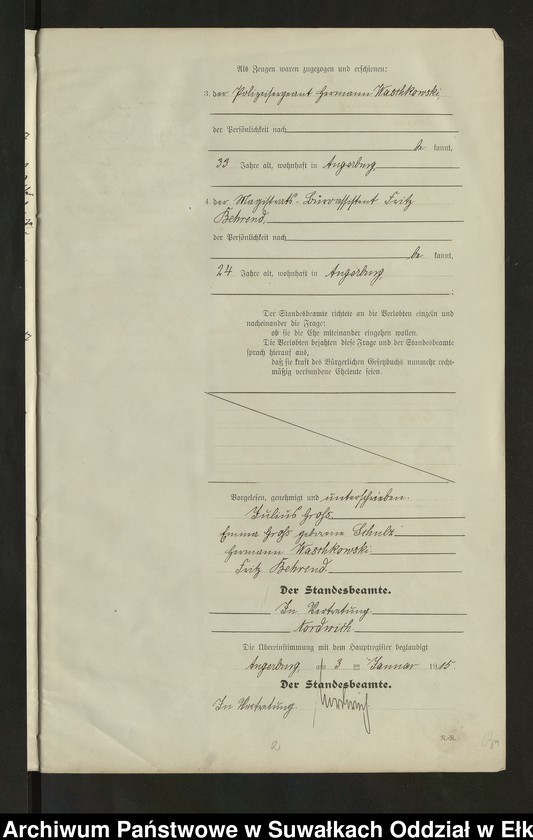 Als Zeugen waren zugezogen und erschienen:
3. der Polizeisergeant Hermann Waschkowski,
der Persönlichkeit nach
be kannt,
33 Jahre alt, wohnhaft in Angerburg,
4. der Magistrats-Büroassistent Fritz
Behrend,
der Persönlichkeit nach
be kannt,
24 Jahre alt, wohnhaft in Angerburg,
Der Standesbeamte richtete an die Verlobten einzeln und
nacheinander die Frage:
ob sie die Ehe miteinander eingehen wollen.
Die Verlobten bejahten diese Frage und der Standesbeamte
sprach hierauf aus,
daß sie kraft des Bürgerlichen Gesetzbuchs nunmehr recht-
mäßig verbundene Eheleute seien.
Vorgelesen, genehmigt und unterschrieben.
Julius Groß
Emma Groß geborene Schulz
Hermann Waschkowski.
Fritz Behrend.
Der Standesbeamte.
In Vertretung
Nordwich.
Die Übereinstimmung mit dem Hauptregister beglaubigt
Angerburg, am 3 ten Januar 1915.
Der Standesbeamte.
In Vertretung.
Archiwum Państwowe w Suwałkach Oddział w Ełku